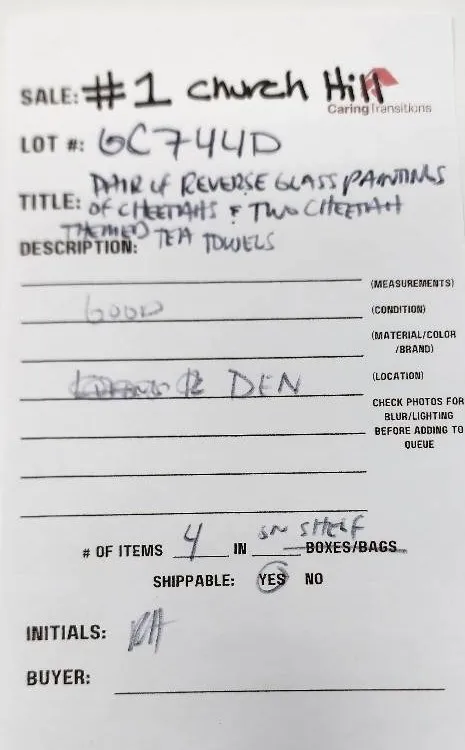 SALE: #1 Church Hill
CaringTransitions
LOT #: GC744D
TITLE: PAIR of REVERSE GLASS PAINTINGS
OF CHEETAHS & TWO CHEETAH
THEMED TEA TOWELS
DESCRIPTION:
(MEASUREMENTS)
GOOD (CONDITION)
(MATERIAL/COLOR
/BRAND)
DEN (LOCATION)
CHECK PHOTOS FOR
BLUR/LIGHTING
BEFORE ADDING TO
QUEUE
# OF ITEMS 4 IN ON SHELF BOXES/BAGS
SHIPPABLE: YES NO
INITIALS: RH
BUYER: